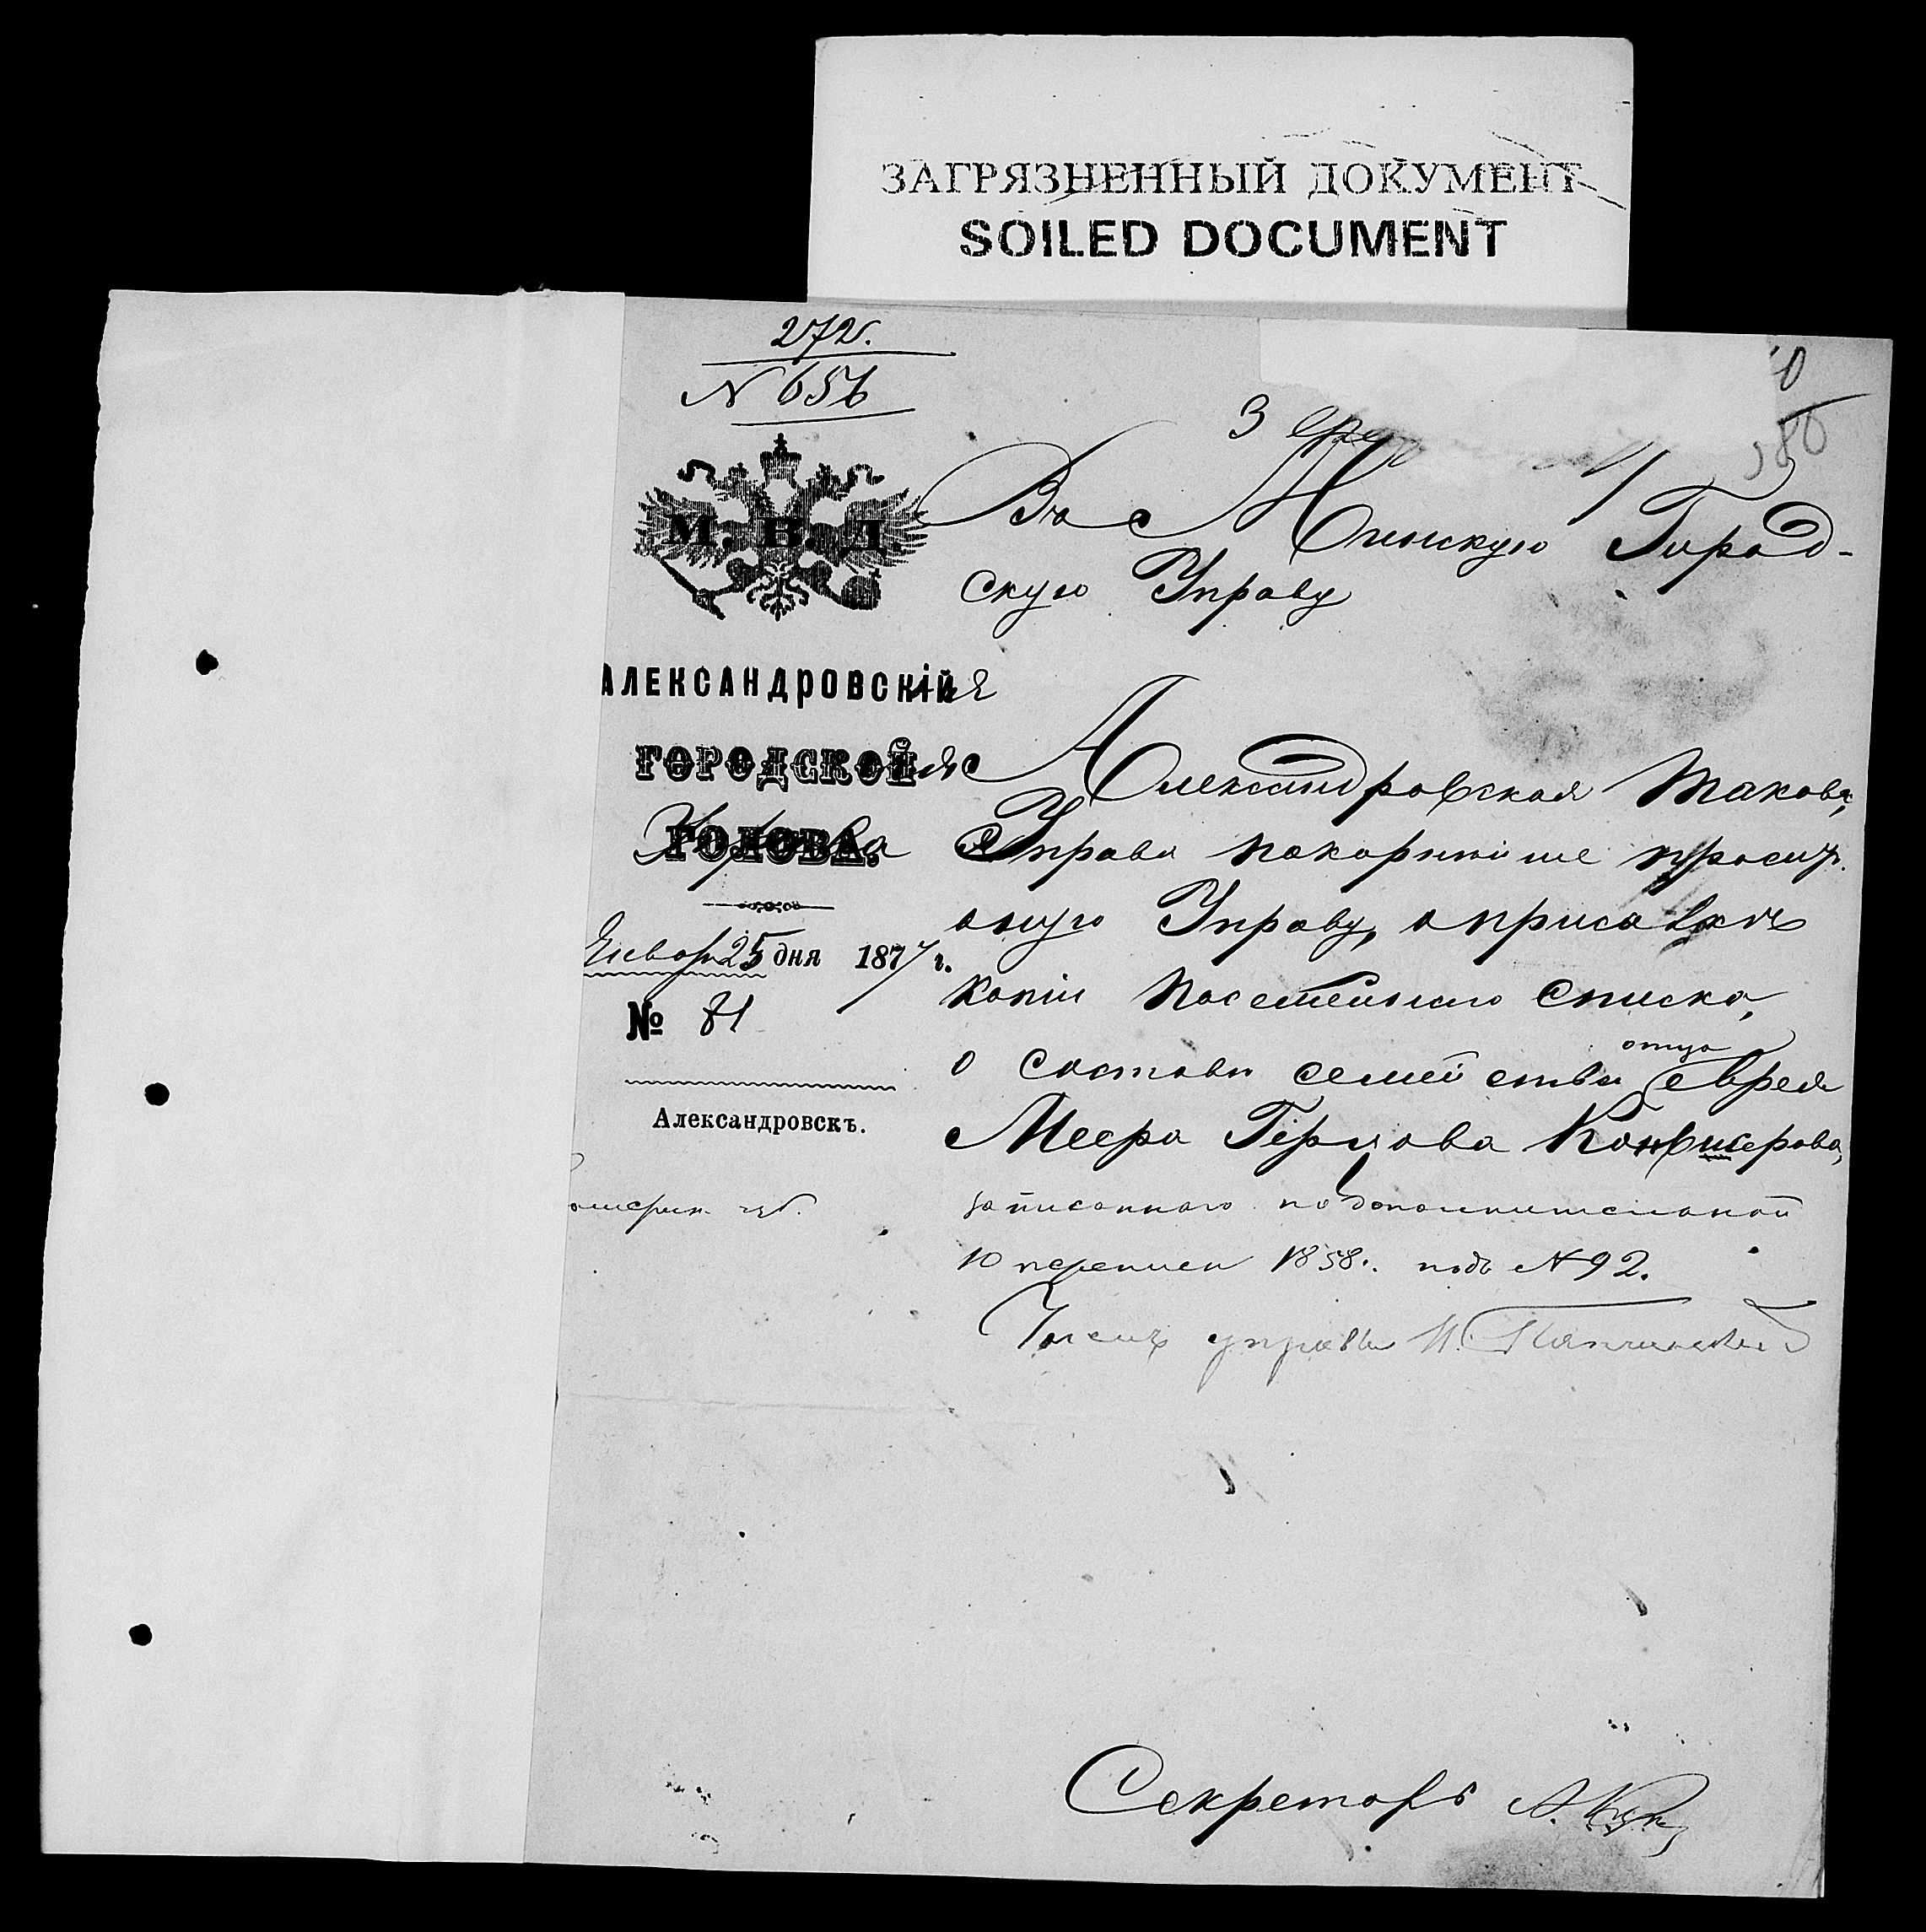 ЗАГРЯЗНЕННЫЙ ДОКУМЕНТ
SOILED DOCUMENT
272.
N 656
3
М. В. Д.
Въ Минскую Город-
скую Управу
АЛЕКСАНДРОВСКІЙ
ГОРОДСКОЙ
ГОЛОВА.
Управа
Января 25 дня 1877 г.
№ 81
Александровскъ.
губ.
Александровская таковая
Управа покорнѣйше проситъ
оную Управу, о присылкѣ
копіи посемейнаго списка,
о составѣ семейства отца еврея
Меера Герцова Конфисерова,
записаннаго по дополнительной
10 переписи 1858 г. подъ N 92.
Членъ управы
Секретарь